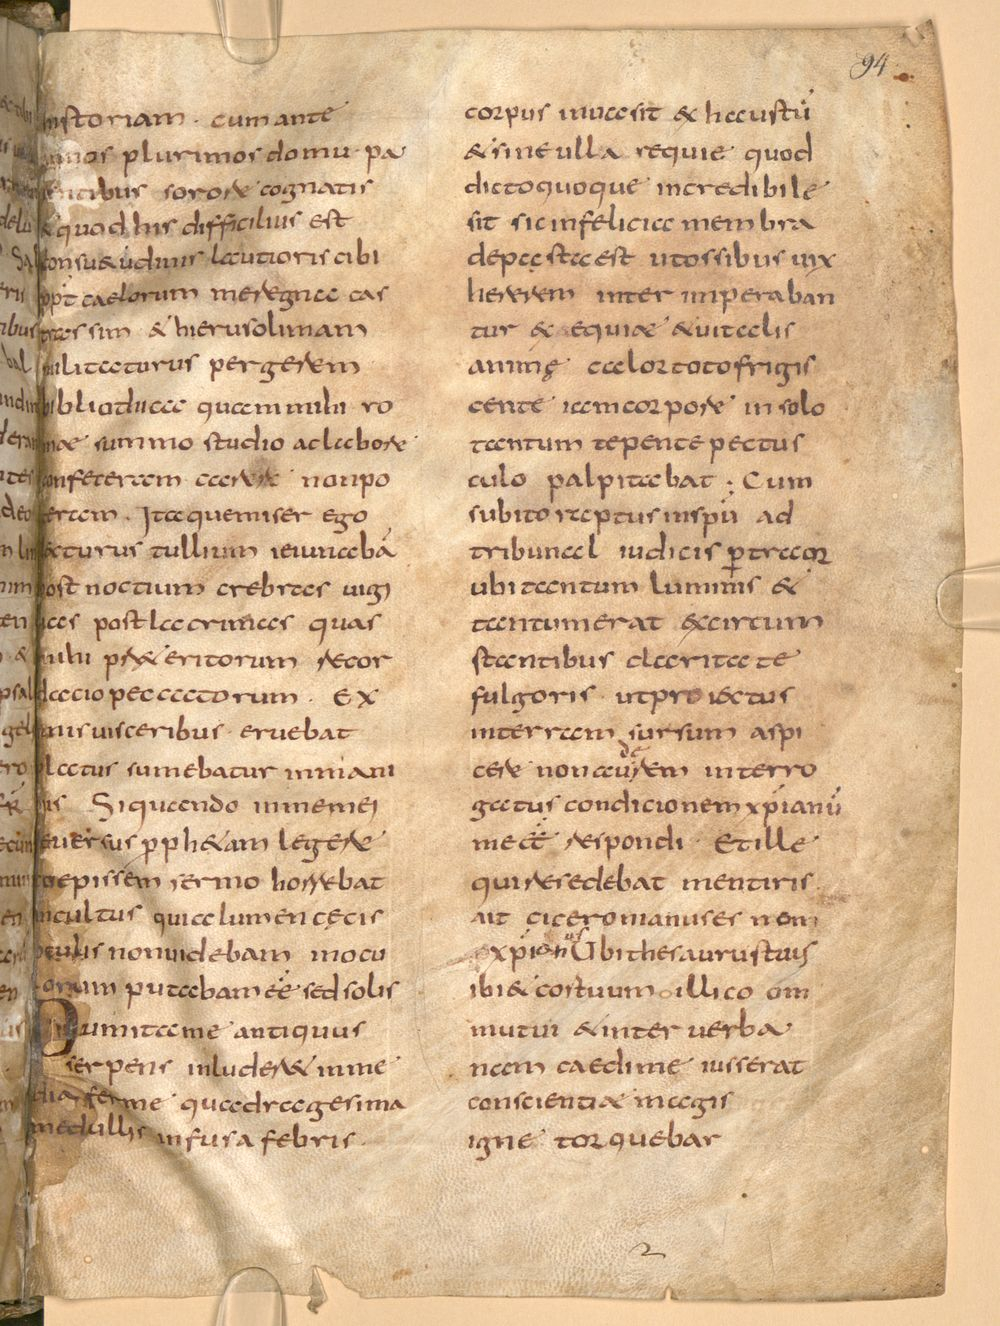 94
historiam · cum ante
annos plurimos domu · pa
rentibus sorore cognatis
& quod his difficilius est
consu&udinis lautioris cibi
ppt caelorum me regna cas
trassim & hierusolimam
militaturus pergerem
bibliotheca quam mihi ro
mae summo studio ac labore
confeceram carere non po
teram · Itaque miser ego
lecturus tullium ieiunabā
post noctium crebras vigi
lias post lacrimas quas
mihi preteritorum recor
datio peccatorum · Ex
imis visceribus eruebat
plautus sumebatur in mani
bus Si quando in memei
reversus proph&am legere
coepissem sermo horrebat
incultus quia lumen cęcis
oculis non videbam in ocu
lorum putabam ēē sed solis
Dum ita me antiquus
serpens inluderet in me
dia ferme quadragesima
medullis infusa febris ·
corpus invasit & haustū
& sine ulla requie quod
dictoquoque incredibile
sit sic infelicia membra
depasta est ut ossibus vix
hererem inter imperaban
tur exequiae & vitalis
animę calor toto frigis
cente iam corpore in solo
tantum tepente pectus
culo palpitabat ; Cum
subito raptus in spū ad
tribunal iudicis ptracor
ubi tantum luminis &
tantum erat & circum
stantibus claritate
fulgoris · ut proiectus
in terram sursum aspi
cere non auderem interro
gatus condicionem xpianū
me ēē respondi · Et ille
qui resedebat mentiris
ait ciceronianus es non
xpianus Ubi thesaurus tuus
ibi & cor tuum illico om
mutui & inter verba
nam caedi me iusserat
conscientiae magis
igne torquebar